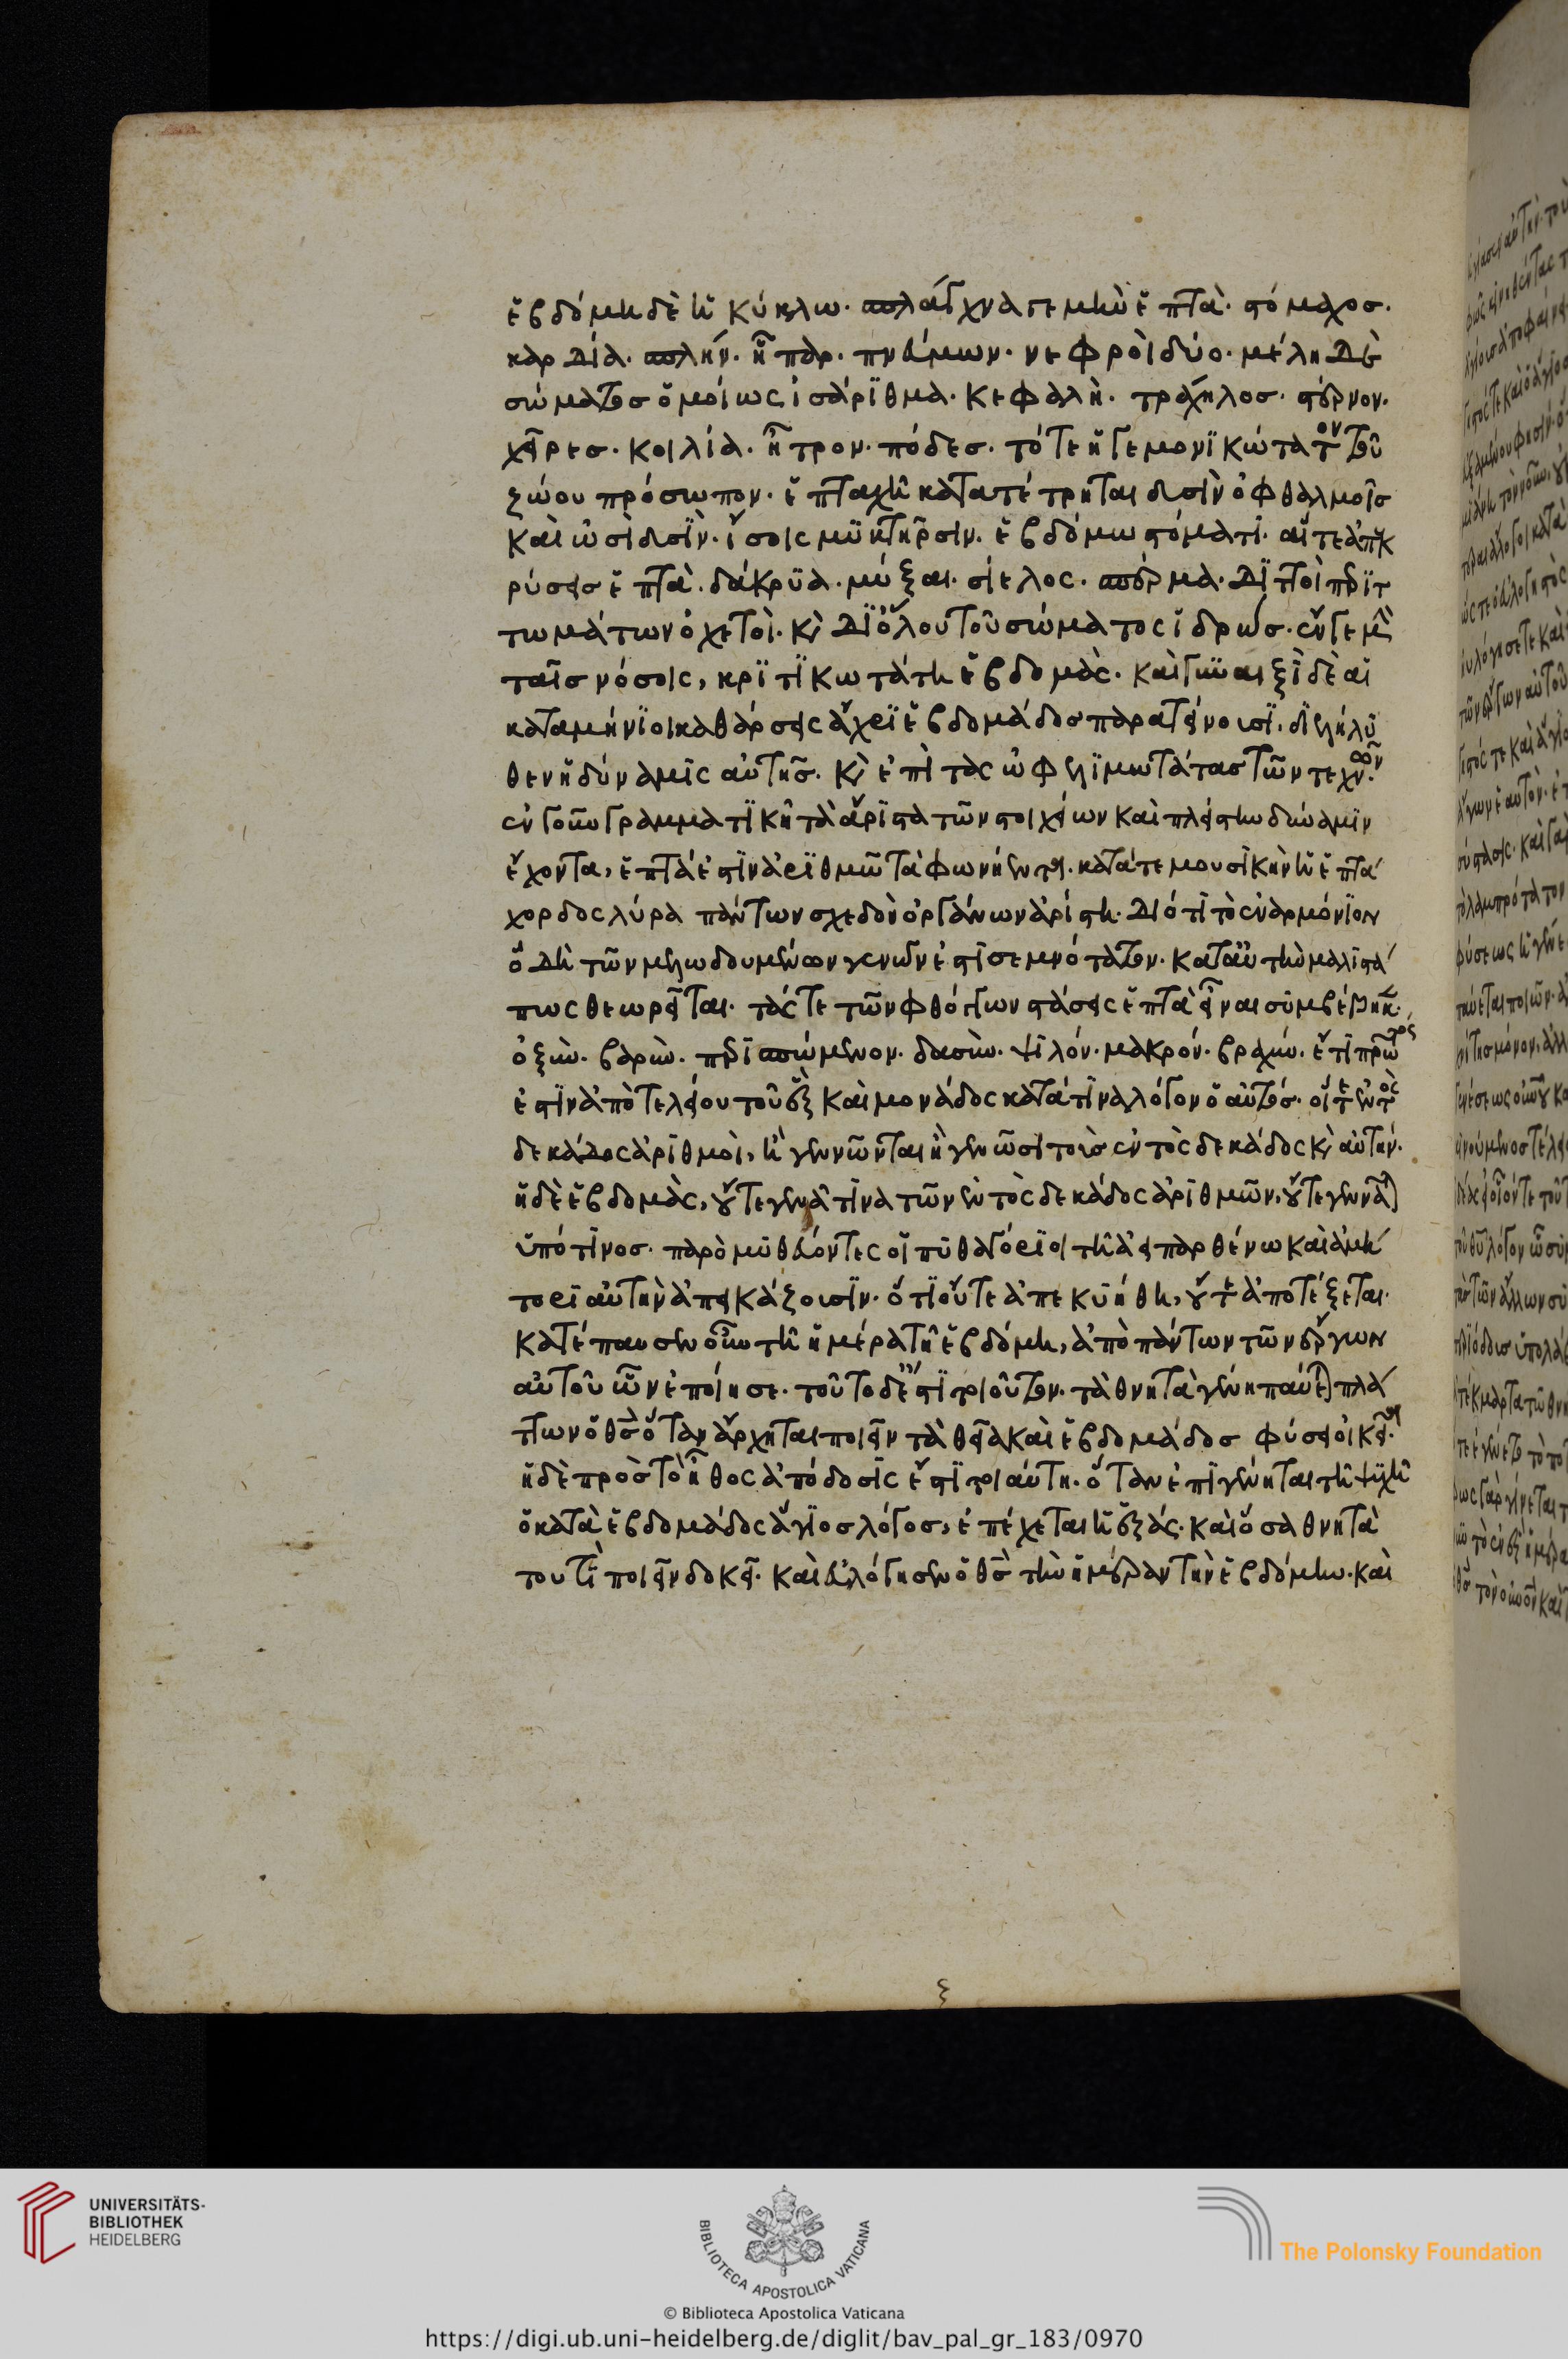 ἑβδόμη δὲ ἡ κύκλω· σπλάγχνά γε μὴν ἑπτὰ· στόμαχος·
καρδία· σπλήν· ἧπαρ· πνεύμων· νεφροὶ δύο· μέλη δὲ
σώματος ὁμοίως ἰσάριθμα· κεφαλὴ· τράχηλος· στέρνον·
χεῖρες· κοιλία· ἦτρον· πόδες· τό τε ἡγεμονικώτατον τοῦ
ζώου πρόσωπον· ἑπταχῆ κατατέτρηται δυσὶν ὀφθαλμοῖς
καὶ ὠσὶ δυσὶν· ἴσοις μυκτῆρσιν· ἑβδόμω στόματι· αἵ τε ἀποκ
ρύσεις ἑπτὰ· δάκρυα· μύξαι· σίελος· σπέρμα· διττοὶ περιτ
τωμάτων ὀχετοὶ· καὶ δι' ὅλου τοῦ σώματος ἱδρὼς· ἔν γε μὴν
ταῖς νόσοις, κριτικωτάτη ἑβδομὰς· καὶ γυναιξὶ δὲ αἱ
καταμήνιοι καθάρσεις ἄχρι ἑβδομάδος παρατείνουσι· διελήλυ
θεν ἡ δύναμις αὐτῆς· καὶ ἐπὶ τὰς ὠφελιμωτάτας τῶν τεχνῶν·
ἐν γοῦν γραμματικῆ τὰ ἄριστα τῶν στοιχείων καὶ πλείστην δύναμιν
ἔχοντα, ἑπτά ἐστιν ἀριθμῶ τὰ φωνήεντα· κατά τε μουσικὴν ἡ ἑπτά
χορδος λύρα πάντων σχεδὸν ὀργάνων ἀρίστη· διότι τὸ ἐναρμόνιον
ὃ δὴ τῶν μελωδουμένων γενῶν ἐστι σεμνότατον· κατ' αὐτὴν μάλιστά
πως θεωρεῖται· τάς τε τῶν φθόγγων στάσεις ἑπτὰ εἶναι συμβέβηκεν·
ὀξὺν· βαρὺν· περισπώμενον· δασὺν· ψιλόν· μακρόν· βραχύν· ἔτι πρῶτος
ἐστιν ἀπὸ τελείου τοῦ ἓξ καὶ μονάδος κατά τινα λόγον ὁ αὐτός· οἵ τε ἐντὸς
δεκάδος ἀριθμοὶ, ἢ γεννῶνται ἢ γεννῶσι τοὺς ἐντὸς δεκάδος καὶ αὐτήν·
ἡ δὲ ἑβδομὰς, οὔτε γεννᾶ τινα τῶν ἐντὸς δεκάδος ἀριθμῶν, οὔτε γεννᾶται
ὑπό τινος· παρὸ μυθεύοντες οἱ πυθαγόριοι τῆ ἀειπαρθένω καὶ ἀμή
τορι αὐτὴν ἀπεικάζουσιν· ὅτι οὔτε ἀπεκυήθη, οὔτε ἀποτέξεται·
κατέπαυσεν οὖν τῆ ἡμέρα τῆ ἑβδόμη, ἀπὸ πάντων τῶν ἔργων
αὐτοῦ ὧν ἐποίησε· τοῦτο δέ ἐστι τοιοῦτον· τὰ θνητὰ γένη παύεται πλά
ττων ὁ θεὸς ὅταν ἄρχηται ποιεῖν τὰ θεῖα καὶ ἑβδομάδος φύσει οἰκεῖα·
ἡ δὲ πρὸς τὸ ἦθος ἀπόδοσίς ἐστι τοιαύτη· ὅταν ἐπιγένηται τῆ ψυχῆ
ὁ κατὰ ἑβδομάδος ἅγιος λόγος, ἐπέχεται ἡ ἑξάς· καὶ ὅσα θνητὰ
τουτὶ ποιεῖν δοκεῖ· καὶ εὐλόγησεν ὁ θεὸς τὴν ἡμέραν τὴν ἑβδόμην· καὶ
ξ
UNIVERSITÄTS-
BIBLIOTHEK
HEIDELBERG
BIBLIOTECA APOSTOLICA VATICANA
The Polonsky Foundation
© Biblioteca Apostolica Vaticana
https://digi.ub.uni-heidelberg.de/diglit/bav_pal_gr_183/0970